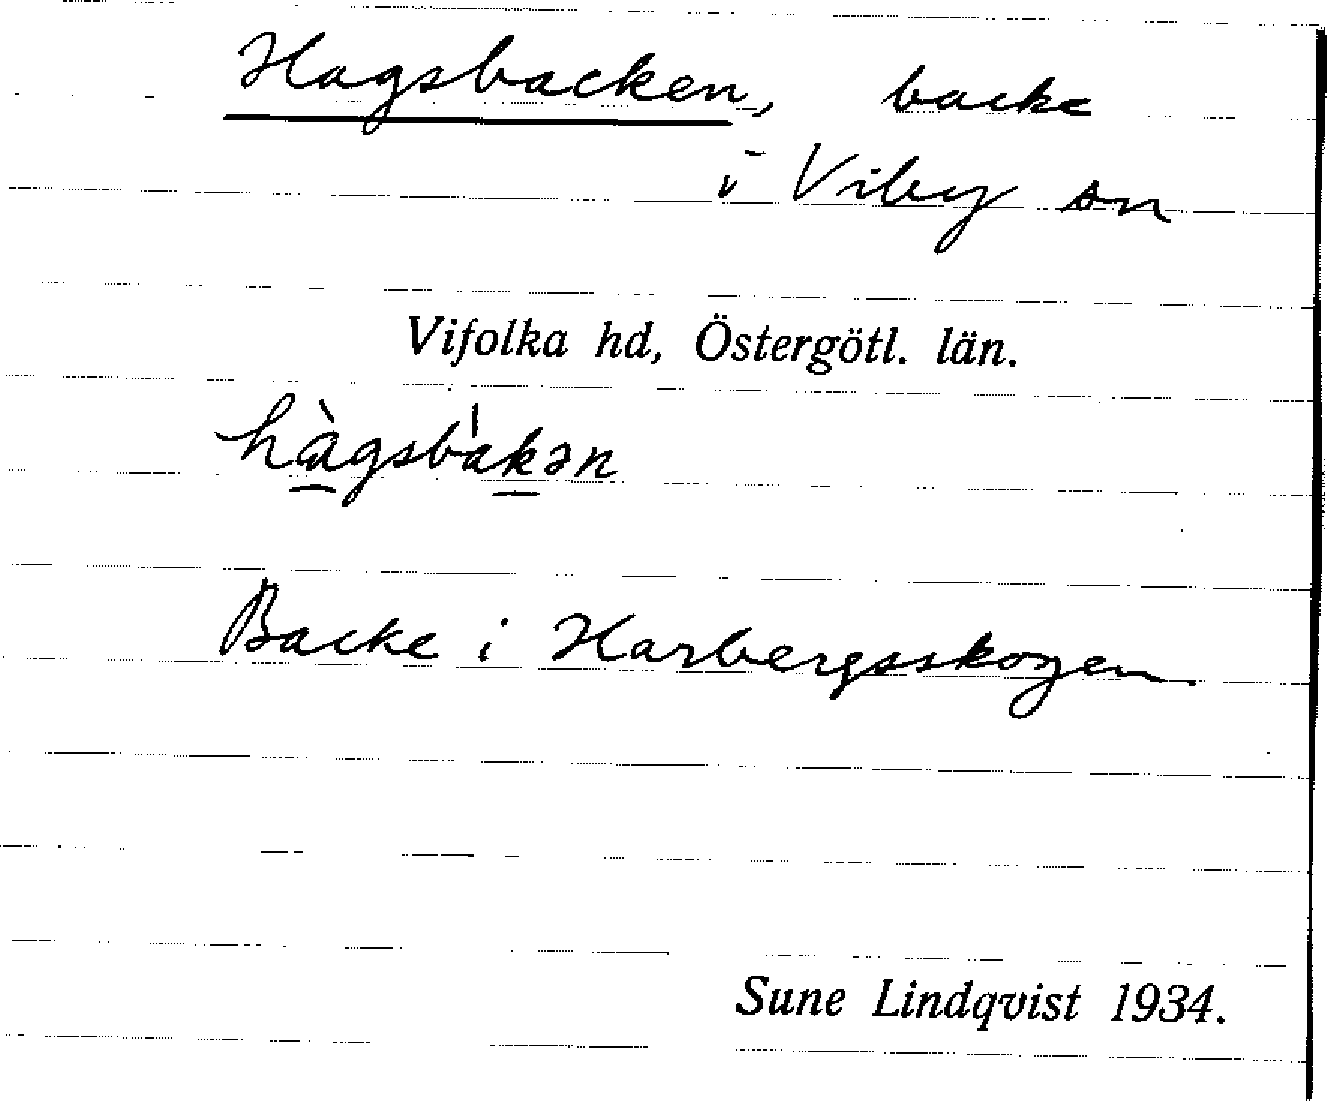 Hagsbacken, backe
i Viby sn
Vifolka hd, Östergötl. län.
hàgsbakən
Backe i Harbergsskogen
Sune Lindqvist 1934.